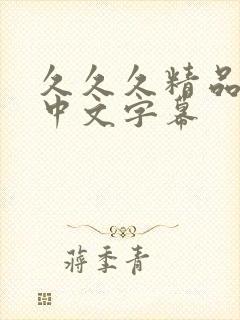 久久久精品
中文字幕
蒋季青